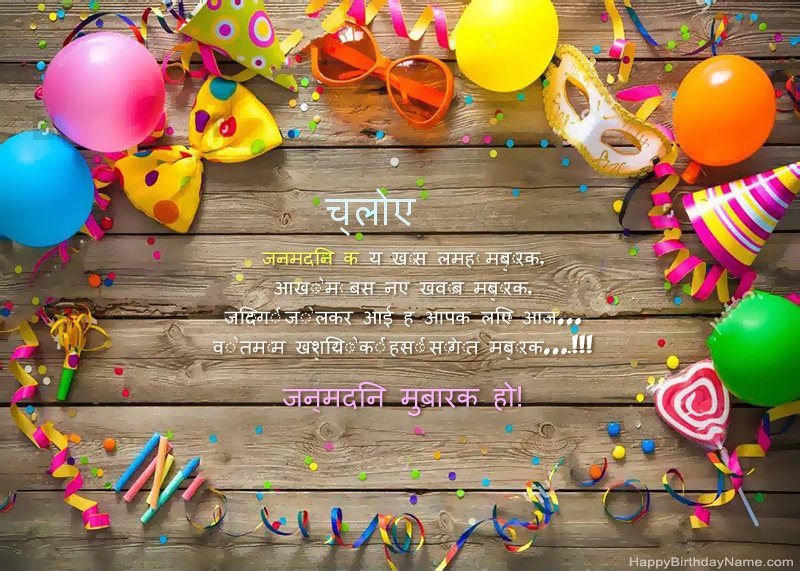 च्लोए
जनमदनि क य खास लमहा मबारक,
आखों में बस नए खवाब मबारक,
जदिगी जो लेकर आई ह आपक लएि आज...
वो तमाम खशयिों की हसी सौगात मबारक...!!!
जन्मदनि मुबारक हो!
HappyBirthdayName.com